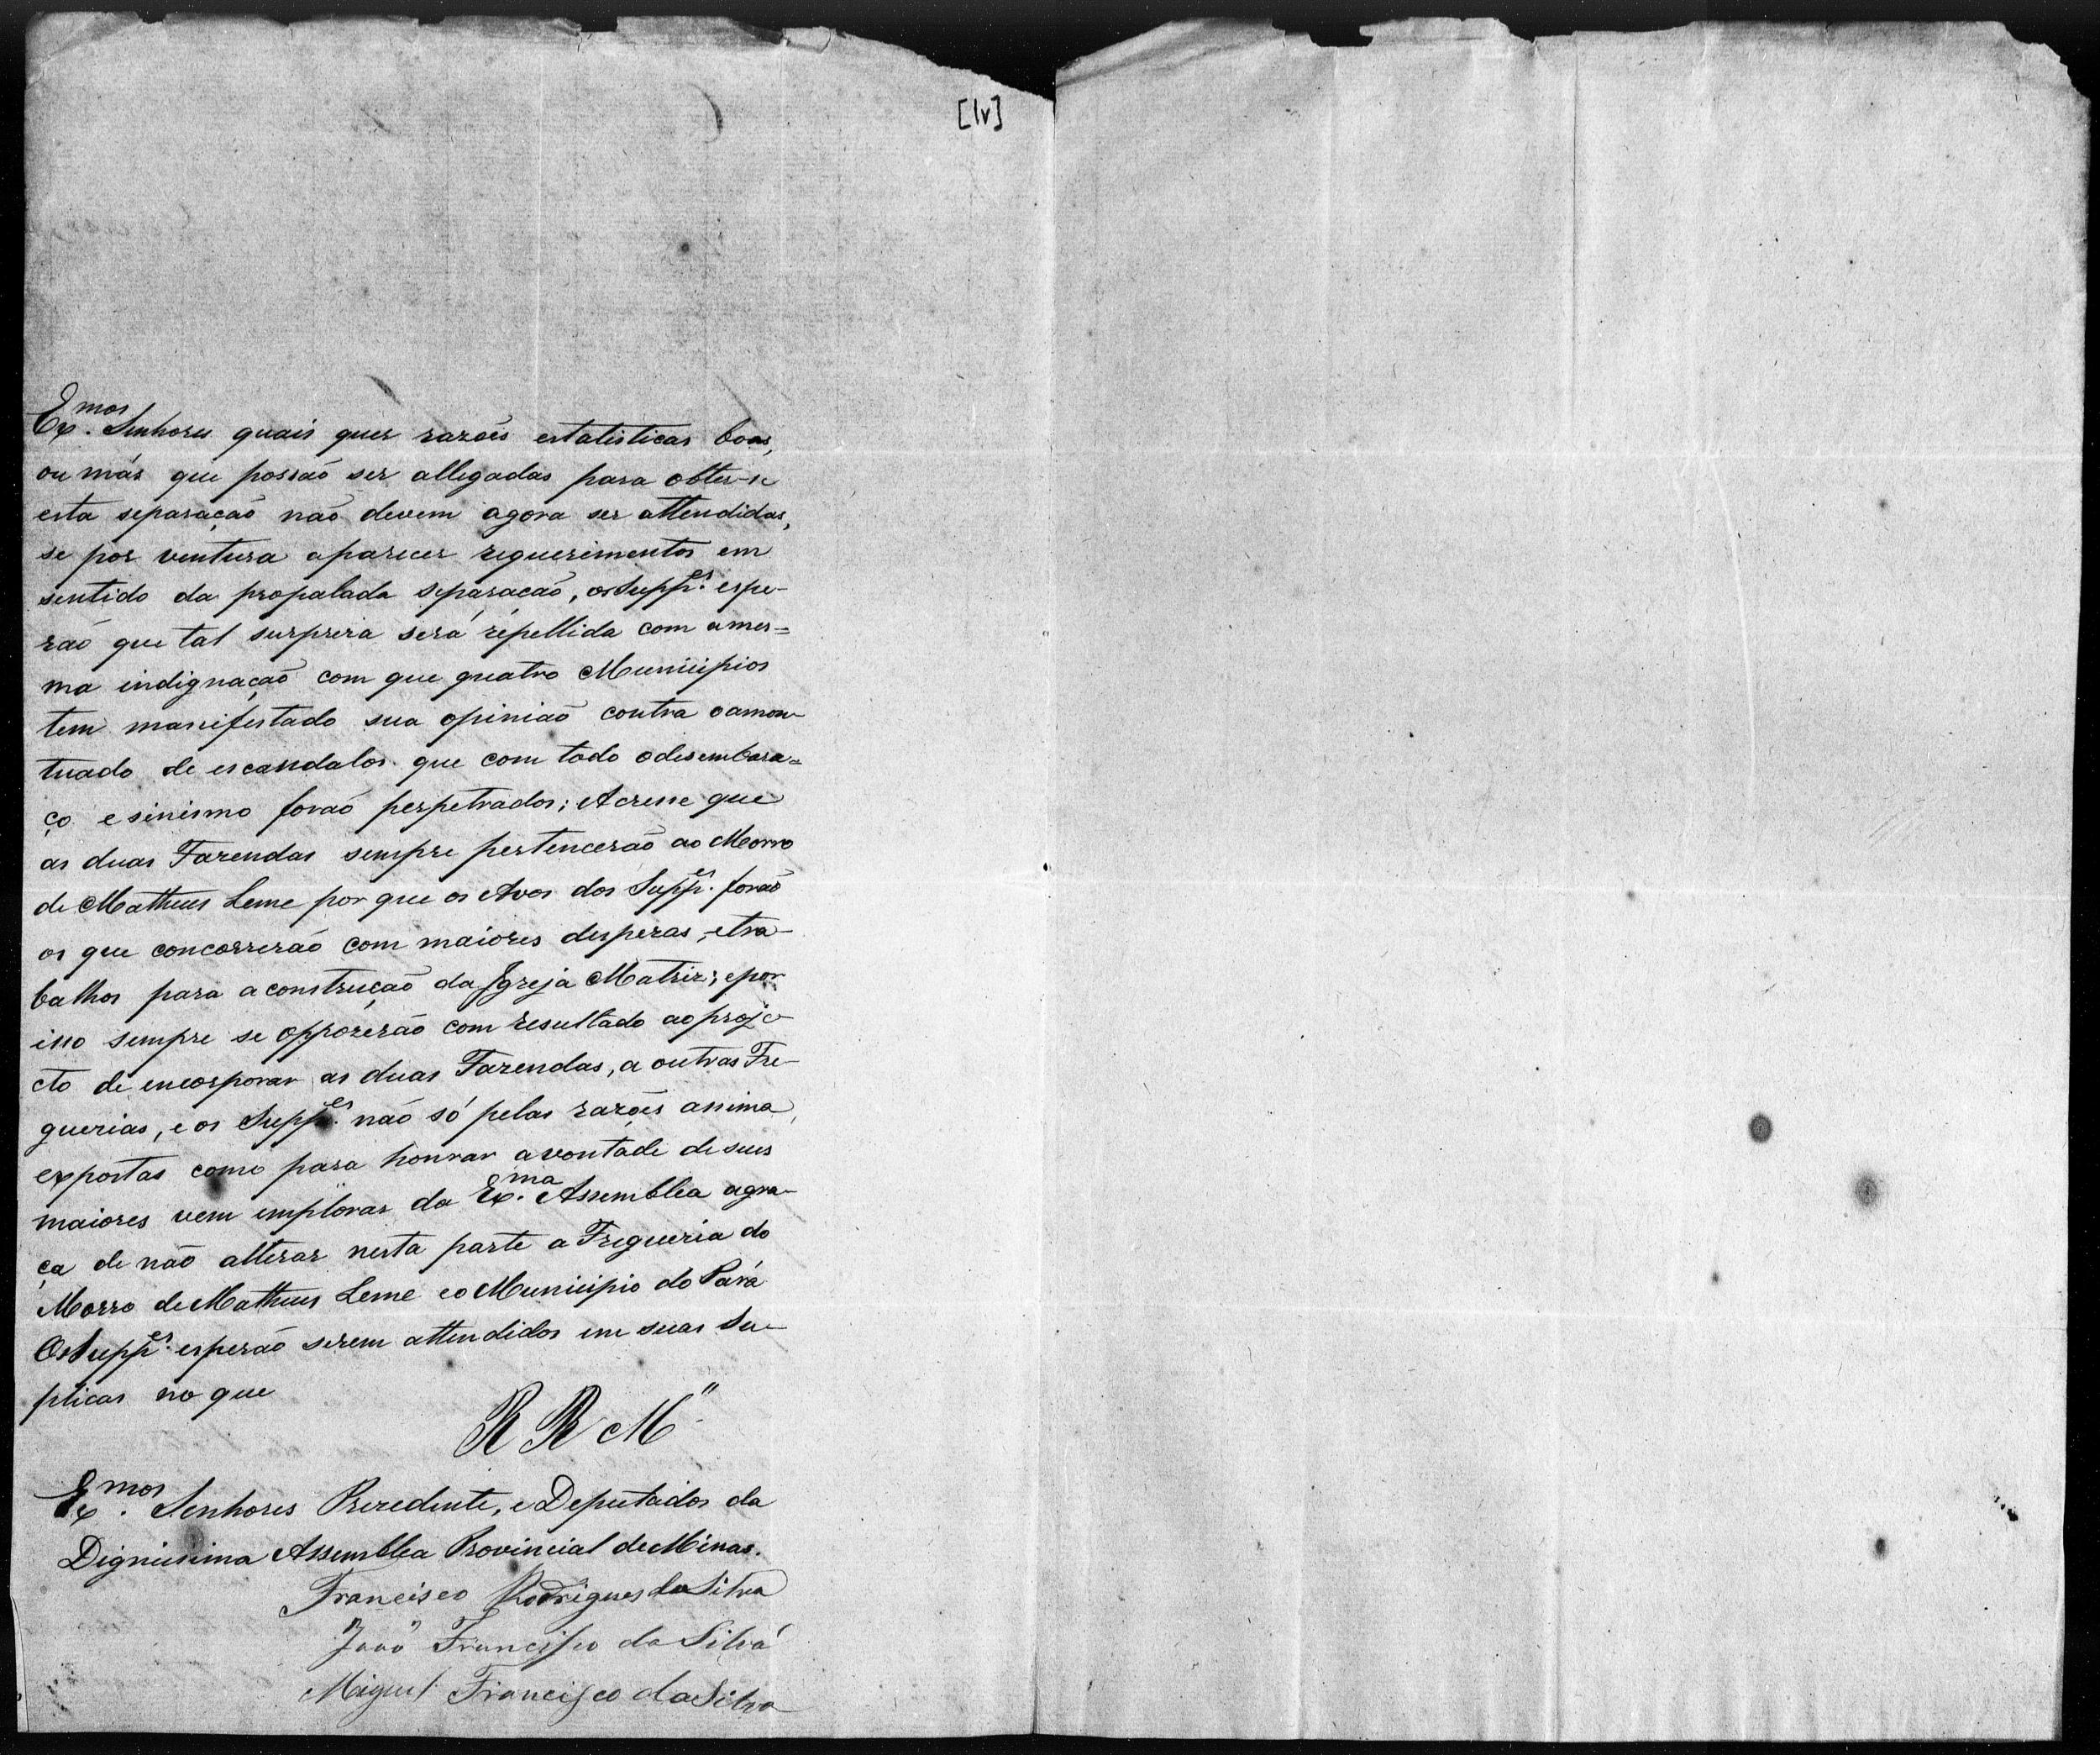 [1v]
Ex.mos Senhores quais quer razoẽs estatisticas boas,
ou más que possaõ ser allegadas para obter-se
esta separaçaõ naõ devem agora ser attendidas,
se por ventura aparecer requerimentos em
sentido da propalada separaçaõ, osSupp.es espe-
raõ que tal surpreza será repellida com ames=
ma indignaçaõ com que quatro Municipios
tem manifestado sua opiniaõ contra oamon-
tuado de escandalos que com todo odesembara=
ço esinismo foraõ perpetrados; Acresse que
as duas Fazendas sempre pertenceraõ ao Morro
de Matheus Leme por que os Avos dos Supp.es foraõ
os que concorreraõ com maiores despezas, etra-
balhos para aconstruçaõ da Igreja Matriz; epor
isso sempre se oppozeraõ com resultado ao proje-
cto de encorporar as duas Fazendas, a outras Fre-
guezias, e os Supp.es naõ só pelas razoẽs assima
expostas como para honrar avontade de seus
maiores vem implorar da Ex.ma Assemblea agra-
ça de naõ alterar nesta parte a Freguezia do
Morro de Matheus Leme eo Municipio do Pará
OsSupp.es esperaõ serem attendidos em suas su-
plicas no que
R R M"
Ex.mos Senhores Prezedente, e Deputados da
Dignissima Assemblea Provincial de Minas.
Francisco Rodrigues da Silva
Joaõ Francisco da Silva
Miguel Francisco da Silva